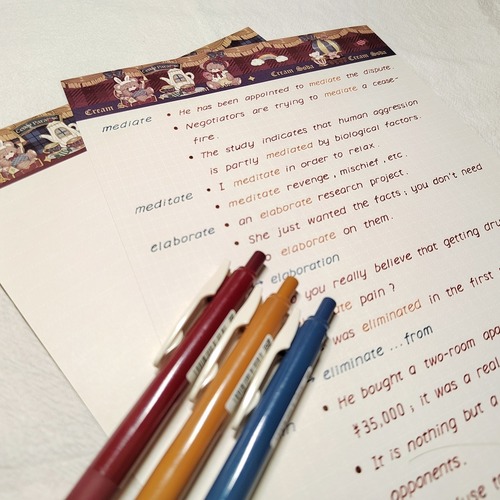 Candy Paradise
Candy Paradise
Cream
Cream Soda
Cream Soda
mediate
He has been appointed to mediate the dispute
Negotiators are trying to mediate a cease-
fire.
The study indicates that human aggression
is partly mediated by biological factors.
meditate
I meditate in order to relax.
meditate revenge, mischief, etc.
elaborate
an elaborate research project.
She just wanted the facts; you don't need
elaborate on them.
elaboration
you really believe that getting
pain?
was eliminated in the first
eliminate ... from
He bought a two-room
¥35,000; it was a real
It is nothing but a
opponents.